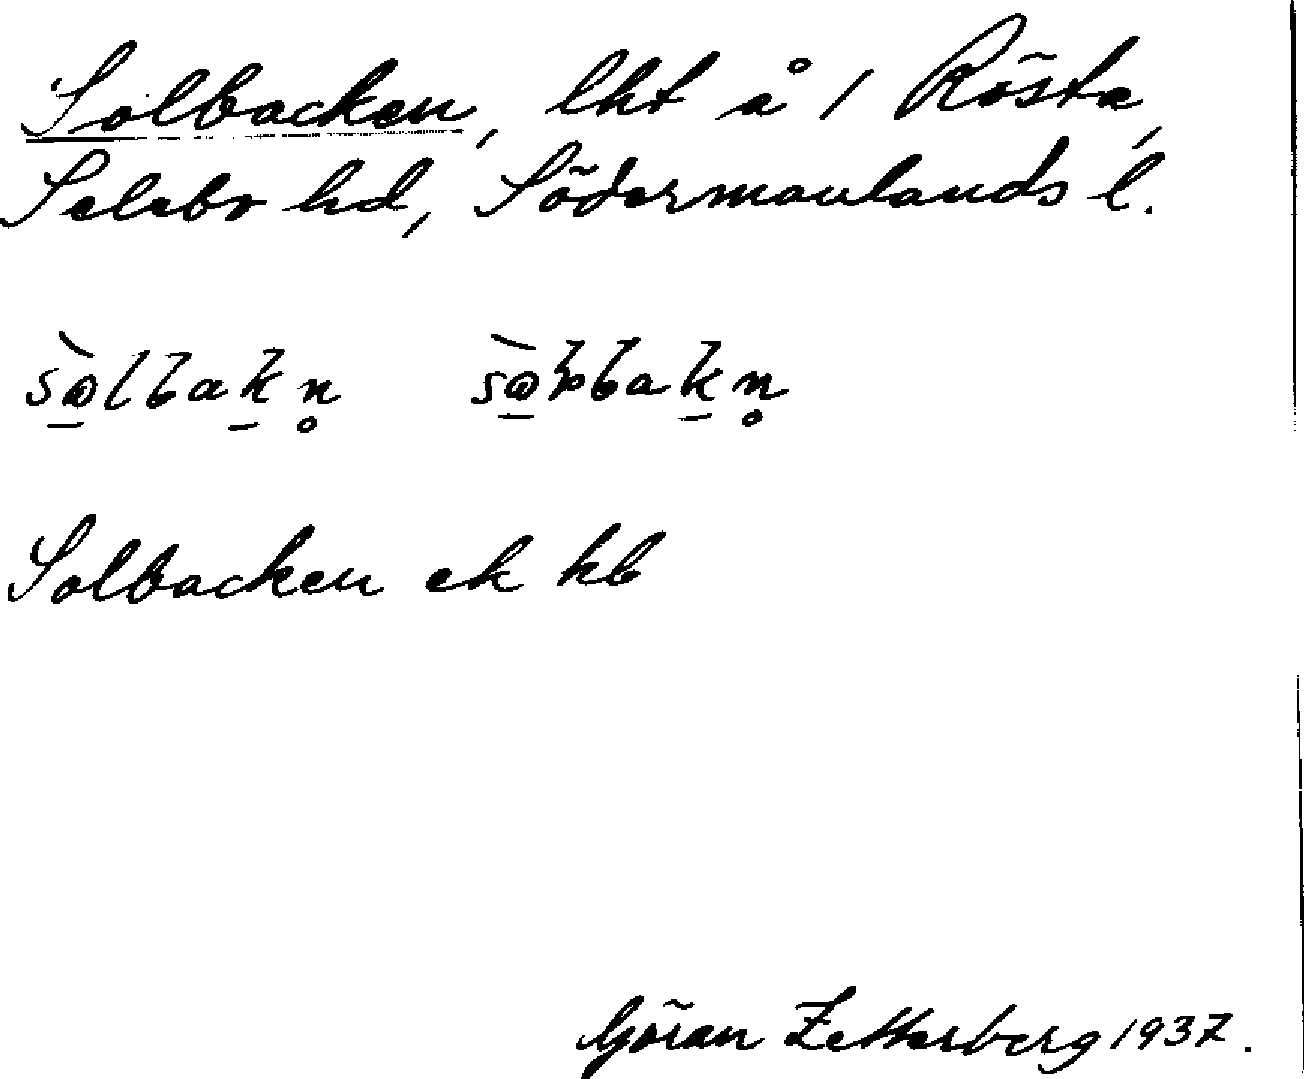 Solbacken, lht å 1 Rösta,
Selebo hd, Södermanlands l.
Solbacken ek kb
Göran Zetterberg 1937.